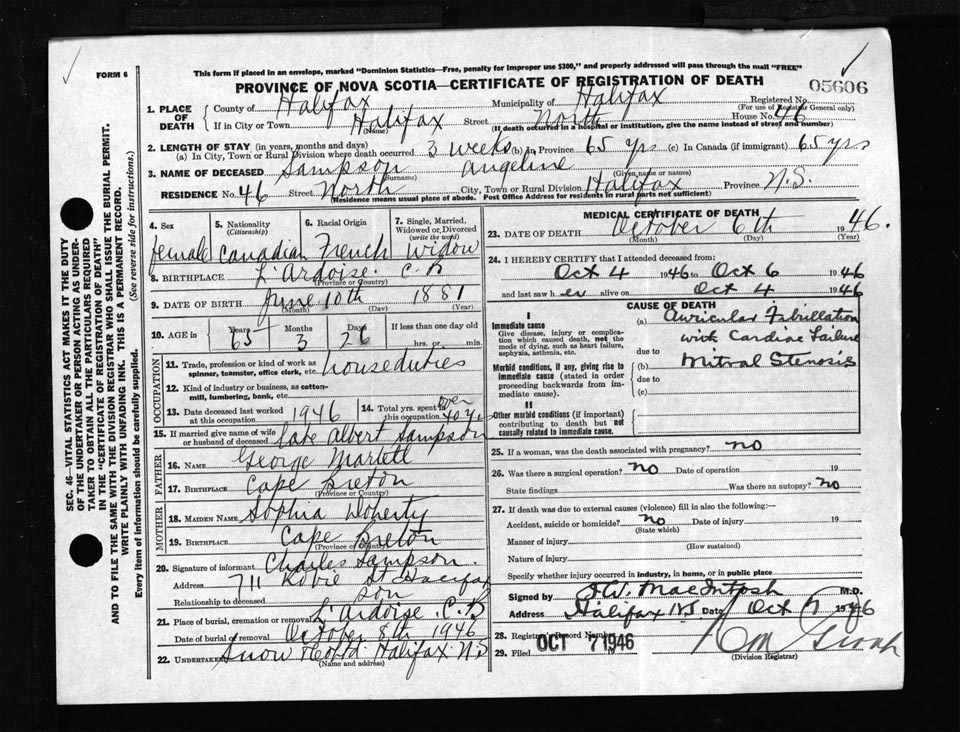 FORM 6
This form if placed in an envelope, marked "Dominion Statistics—Free, penalty for improper use $300," and properly addressed will pass through the mail "FREE"
PROVINCE OF NOVA SCOTIA—CERTIFICATE OF REGISTRATION OF DEATH
05606
1. PLACE OF DEATH
County of Halifax Municipality of Halifax Registered No.
(For use of Registrar General only)
If in City or Town Halifax Street North House No. 46
(Name) (If death occurred in a hospital or institution, give the name instead of street and number)
2. LENGTH OF STAY (in years, months and days)
(a) In City, Town or Rural Division where death occurred 3 weeks (b) in Province 65 yrs (c) in Canada (if immigrant) 65 yrs
3. NAME OF DECEASED Sampson Angeline
(Surname) (Given name or names)
RESIDENCE No. 46 Street North City, Town or Rural Division Halifax Province N.S.
(Residence means usual place of abode. Post Office Address for residents in rural parts not sufficient)
4. Sex female
5. Nationality (Citizenship) Canadian
6. Racial Origin French
7. Single, Married, Widowed or Divorced (write the word) Widow
8. BIRTHPLACE L'Ardoise. C.B
(Province or Country)
9. DATE OF BIRTH June 10th 1881
(Month) (Day) (Year)
10. AGE in Years 65 Months 3 Days 26 If less than one day old hrs. or min.
OCCUPATION
11. Trade, profession or kind of work as spinner, teamster, office clerk, etc. houseduties
12. Kind of industry or business, as cotton-mill, lumbering, bank, etc.
13. Date deceased last worked at this occupation 1946
14. Total yrs. spent in this occupation over 40 yrs
15. If married give name of wife or husband of deceased late Albert Sampson
FATHER
16. NAME George Martell
17. BIRTHPLACE Cape Breton
(Province or Country)
MOTHER
18. MAIDEN NAME Sophia Doherty
19. BIRTHPLACE Cape Breton
(Province or Country)
20. Signature of informant Charles Sampson.
Address 711 Robie St Halifax
Relationship to deceased son
21. Place of burial, cremation or removal L'Ardoise. C.B
Date of burial or removal October 8th 1946
22. Undertaker Snow & Co Ltd. Halifax N.S
(Name and address)
MEDICAL CERTIFICATE OF DEATH
23. DATE OF DEATH October 6th 1946.
(Month) (Day) (Year)
24. I HEREBY CERTIFY that I attended deceased from:
Oct 4 1946 to Oct 6 1946
and last saw her alive on Oct 4 1946
CAUSE OF DEATH
I
Immediate cause
Give disease, injury or complication which caused death, not the mode of dying, such as heart failure, asphyxia, asthenia, etc.
(a) Auricular Fibrillation
with Cardiac Failure
due to
Morbid conditions, if any, giving rise to immediate cause (stated in order proceeding backwards from immediate cause).
(b) Mitral Stenosis
due to
(c)
II
Other morbid conditions (if important) contributing to death but not causally related to immediate cause.
25. If a woman, was the death associated with pregnancy? no
26. Was there a surgical operation? no Date of operation 19
State findings Was there an autopsy? no
27. If death was due to external causes (violence) fill in also the following:—
Accident, suicide or homicide? no Date of injury 19
(State which)
Manner of injury
(How sustained)
Nature of injury
Specify whether injury occurred in industry, in home, or in public place
Signed by MacIntosh M.D.
Address Halifax NS Date Oct 7 1946
28. Registrar's Record Number
29. Filed OCT 7 1946 19
(Division Registrar)
SEC. 46—VITAL STATISTICS ACT MAKES IT THE DUTY OF THE UNDERTAKER OR PERSON ACTING AS UNDERTAKER TO OBTAIN ALL THE PARTICULARS REQUIRED IN THE "CERTIFICATE OF REGISTRATION OF DEATH" AND TO FILE THE SAME WITH THE DIVISION REGISTRAR WHO SHALL ISSUE THE BURIAL PERMIT.
WRITE PLAINLY WITH UNFADING INK. THIS IS A PERMANENT RECORD.
Every item of information should be carefully supplied. (See reverse side for instructions.)